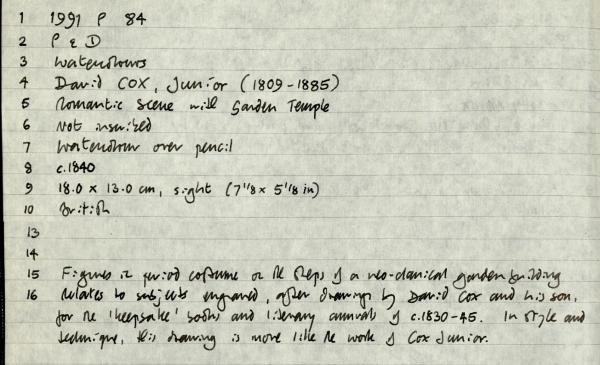 1 1991 P 84
2 P & D
3 Watercolours
4 David COX, Junior (1809-1885)
5 Romantic Scene with Garden Temple
6 Not inscribed
7 Watercolour over pencil
8 c.1840
9 18.0 x 13.0 cm, sight (7 1/8 x 5 1/8 in)
10 British
13
14
15 Figures in period costume on the steps of a neo-classical garden building
16 Relates to subjects engraved, after drawings by David Cox and his son,
for the 'keepsake' books and literary annuals of c.1830-45. In style and
technique, this drawing is more like the work of Cox Junior.